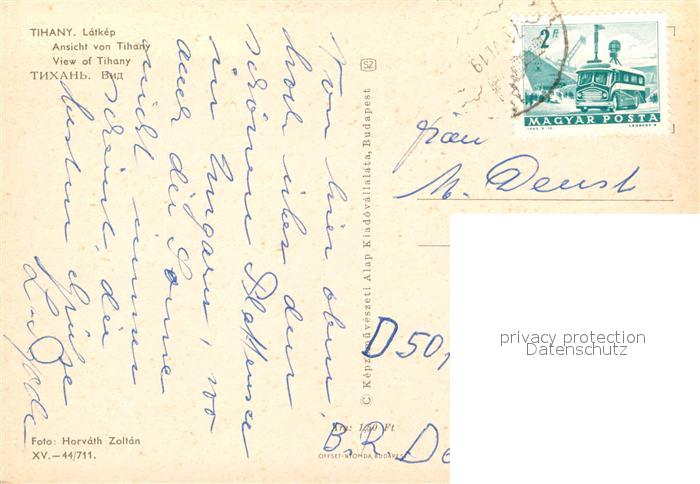 TIHANY. Látkép
Ansicht von Tihany
View of Tihany
ТИХАНЬ. Вид
Von hier oben,
hoch über dem
schönen Plattensee
in Ungarn, wo
auch die Sonne
nicht immer
scheint, die
besten Grüße
SZ
© Képzőművészeti Alap Kiadóvállalata, Budapest
2 Ft
MAGYAR POSTA
Frau
M. Deust
D 50,
B.R. De
privacy protection
Datenschutz
Ára: 1,50 Ft
OFFSET-NYOMDA, BUDAPEST
Foto: Horváth Zoltán
XV.—44/711.